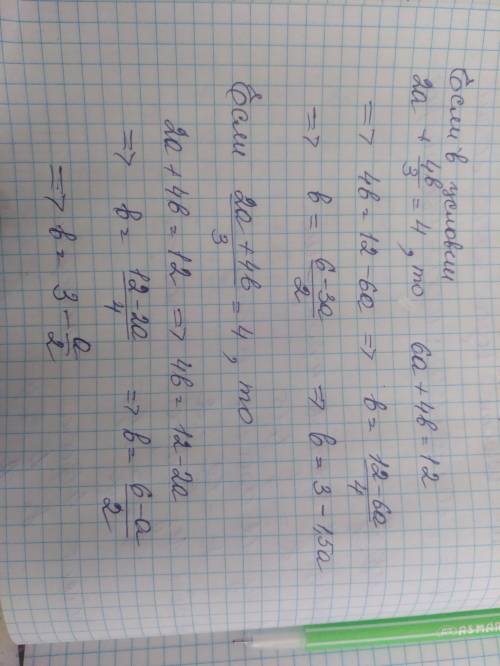 Если в условии
2a + 4b/3 = 4, то 6a + 4b = 12
=> 4b = 12 - 6a => b = 12 - 6a/4
=> b = 6 - 3a/2 => b = 3 - 1,5a
Если 2a + 4b/3 = 4, то
2a + 4b = 12 => 4b = 12 - 2a
=> b = 12 - 2a/4 => b = 6 - a/2
=> b = 3 - a/2
ASMAR